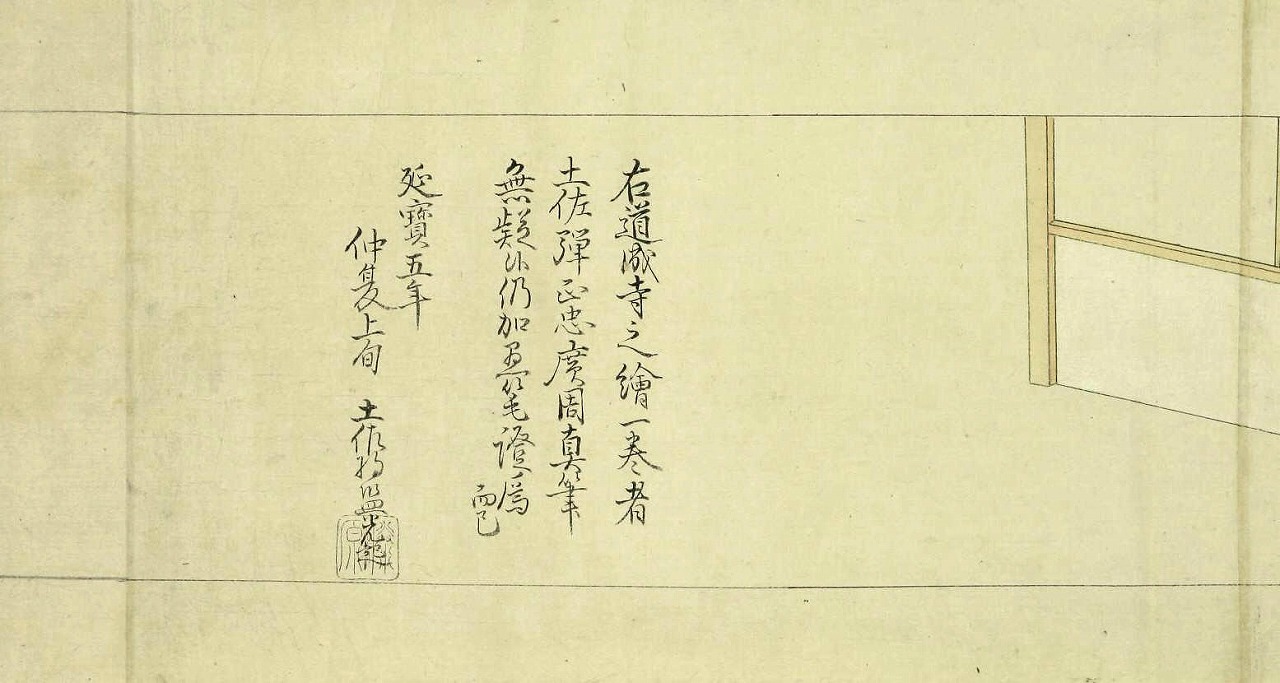 右道成寺之繪一卷者
土佐彈正忠廣周真筆
無疑外仍加愚筆證焉
而已
延寶五年
仲夏上旬　土佐將監光起